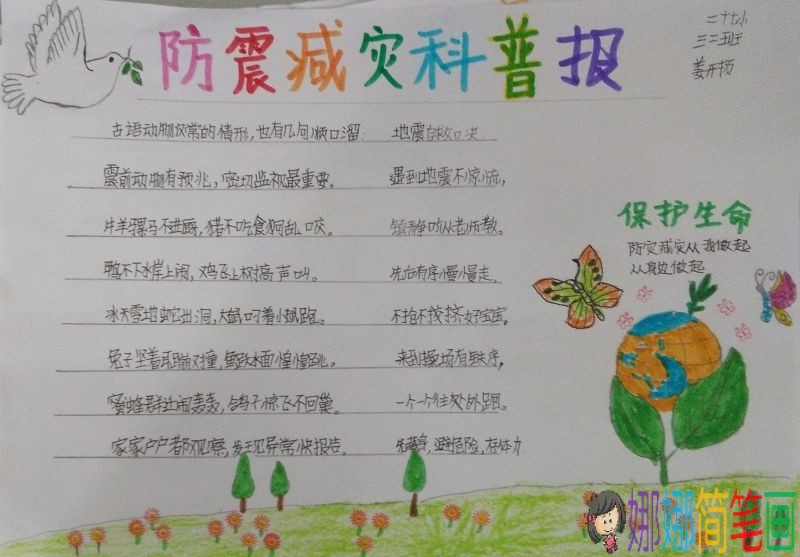 防震减灾科普报
二十七小
三二班
姜开扬
古语动物反常的情形,也有几句顺口溜:
震前动物有预兆,密切监视最重要。
牛羊骡马不进厩,猪不吃食狗乱咬。
鸭不下水岸上闹,鸡飞上树高声叫。
冰天雪地蛇出洞,大鼠叼着小鼠跑。
兔子竖着耳蹦又撞,鱼跃水面惶惶跳。
蜜蜂群迁闹轰轰,鸽子惊飞不回巢。
家家户户都观察,发现异常快报告。
地震自救口决:
遇到地震不惊慌,
镇静听从老师教。
先后有序慢慢走,
不抢不挤好宝宝。
来到操场有秩序,
一个一个往外跑。
先藏身,避危险,存体力
保护生命
防灾减灾从我做起
从身边做起
娜娜简笔画